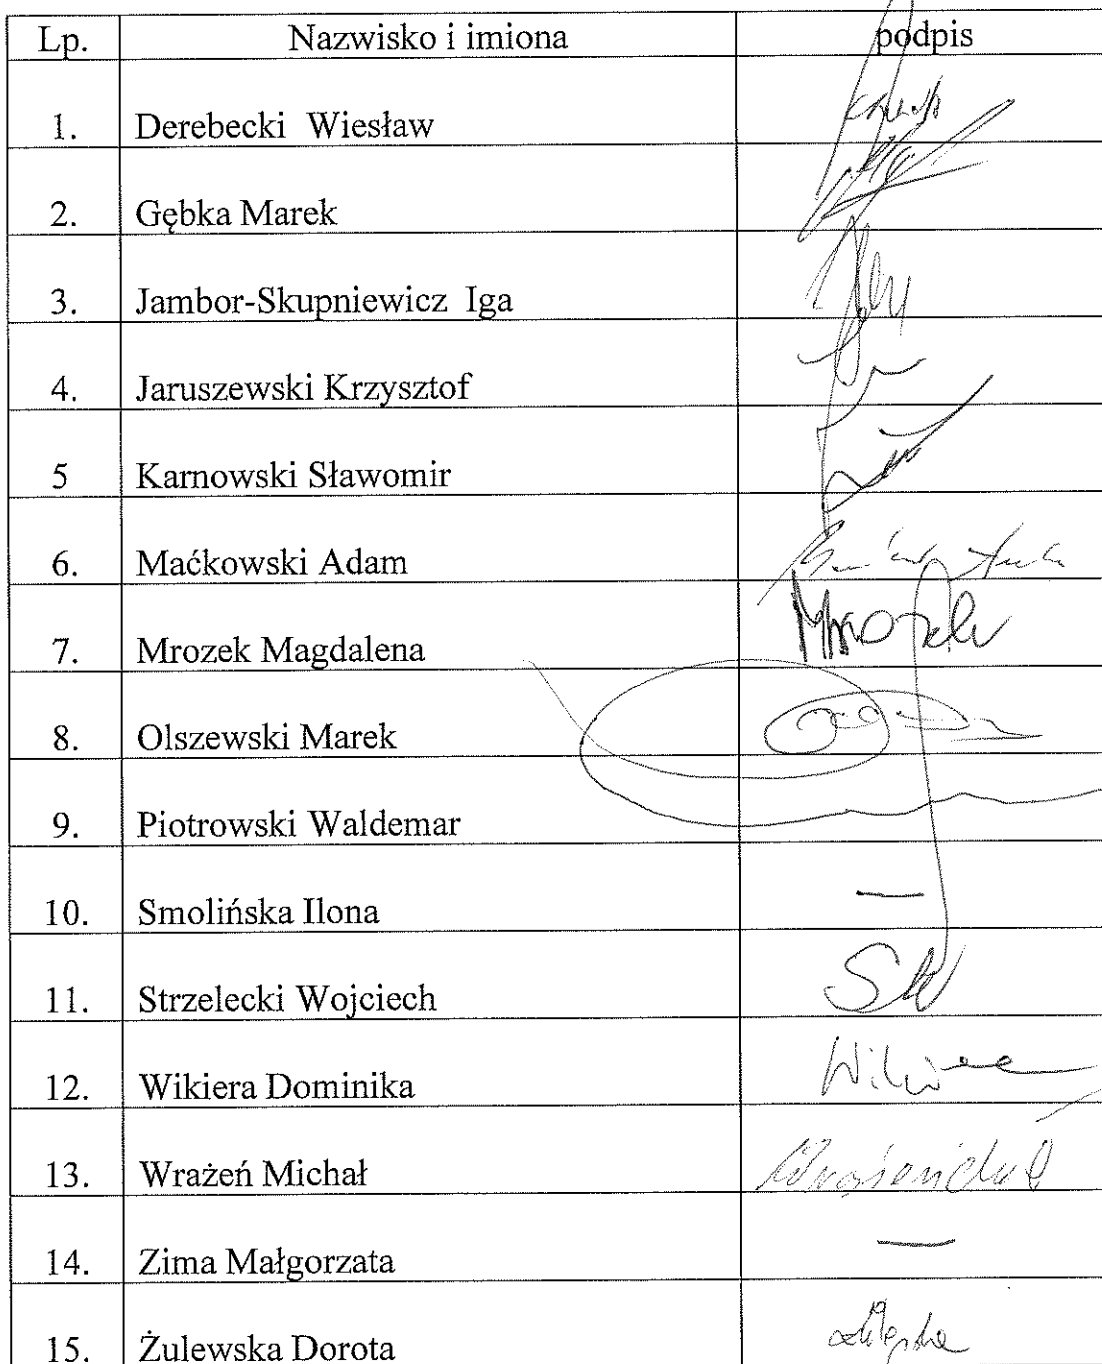 Lp. Nazwisko i imiona podpis
1. Derebecki Wiesław
2. Gębka Marek
3. Jambor-Skupniewicz Iga
4. Jaruszewski Krzysztof
5 Karnowski Sławomir
6. Maćkowski Adam
7. Mrozek Magdalena Mrozek
8. Olszewski Marek
9. Piotrowski Waldemar
10. Smolińska Ilona —
11. Strzelecki Wojciech
12. Wikiera Dominika
13. Wrażeń Michał
14. Zima Małgorzata —
15. Żulewska Dorota